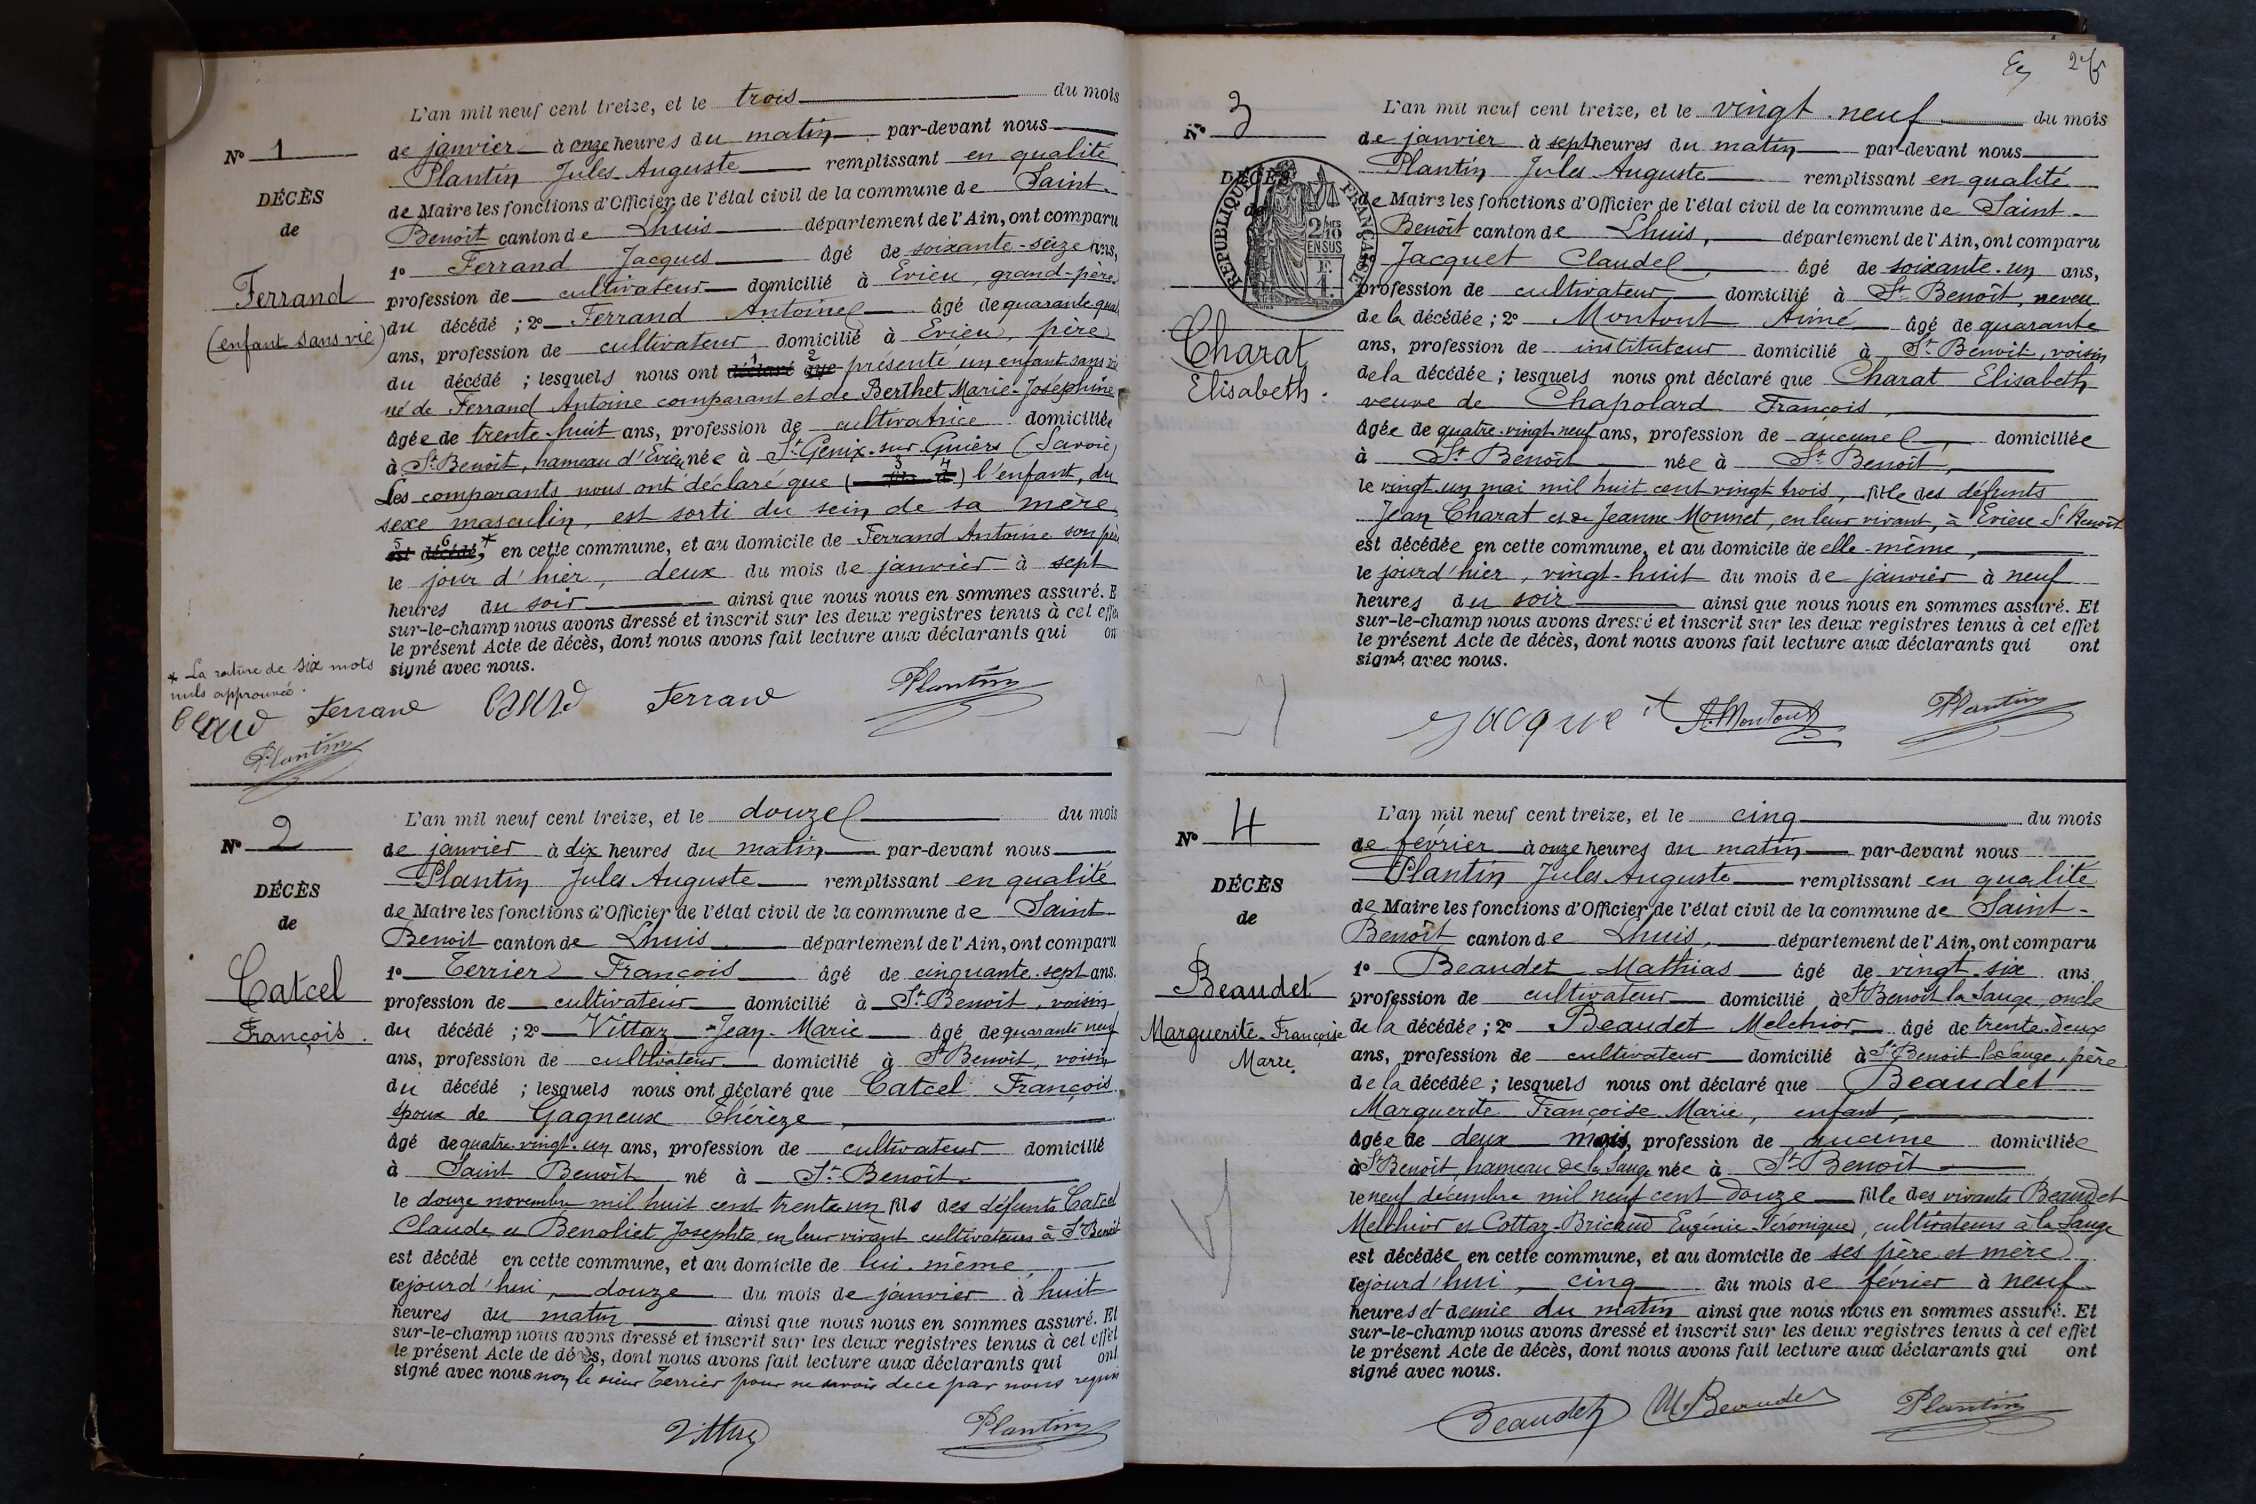 L'an mil neuf cent treize, et le trois du mois
N° 1
de janvier à onze heures du matin par-devant nous
Plantin Jules Auguste remplissant en qualité
DÉCÈS
de Maire les fonctions d'Officier de l'état civil de la commune de Saint-
de
Benoît canton de Lhuis département de l'Ain, ont comparu
1° Ferrand Jacques âgé de soixante-seize ans,
Ferrand
profession de cultivateur domicilié à Evieu, grand-père
(enfant sans vie)
du décédé ; 2° Ferrand Antoine âgé de quarante quat
ans, profession de cultivateur domicilié à Evieu, père
du décédé ; lesquels nous ont déclaré que présenté un enfant sans vie
né de Ferrand Antoine comparant et de Berthet Marie-Joséphine
âgée de trente-huit ans, profession de cultivatrice domiciliée
à St Benoît, hameau d'Evieu née à St Genix-sur-Guiers (Savoie)
Les comparants nous ont déclaré que ( ) l'enfant, du
sexe masculin, est sorti du sein de sa mère
est décédé,* en cette commune, et au domicile de Ferrand Antoine son père
le jour d'hier, deux du mois de janvier à sept
heures du soir ainsi que nous nous en sommes assuré. E
sur-le-champ nous avons dressé et inscrit sur les deux registres tenus à cet effe
le présent Acte de décès, dont nous avons fait lecture aux déclarants qui on
signé avec nous.
* La rature de six mots
nuls approuvée.
Ferrand Ferrand Plantin
Plantin
L'an mil neuf cent treize, et le douze du mois
N° 2
de janvier à dix heures du matin par-devant nous
Plantin Jules Auguste remplissant en qualité
DÉCÈS
de Maire les fonctions d'Officier de l'état civil de la commune de Saint-
de
Benoît canton de Lhuis département de l'Ain, ont comparu
1° Terrier François âgé de cinquante-sept ans.
Catcel
profession de cultivateur domicilié à St Benoît, voisin
François.
du décédé ; 2° Vittaz Jean-Marie âgé de quarante neuf
ans, profession de cultivateur domicilié à St Benoît, voisin
du décédé ; lesquels nous ont déclaré que Catcel François
époux de Gagneux Thérèze,
âgé de quatre-vingt-un ans, profession de cultivateur domicilié
à Saint Benoît né à St Benoît
le douze novembre mil huit cent trente un fils des défunts Catcel
Claude et Benoliet Josephte, en leur vivant cultivateurs à St Benoît
est décédé en cette commune, et au domicile de lui-même,
lejourd'hui, douze du mois de janvier à huit
heures du matin ainsi que nous nous en sommes assuré. Et
sur-le-champ nous avons dressé et inscrit sur les deux registres tenus à cet effet
le présent Acte de décès, dont nous avons fait lecture aux déclarants qui ont
signé avec nous non le sieur Terrier pour ne savoir de ce par nous requis
Vittaz Plantin
25
L'an mil neuf cent treize, et le vingt-neuf du mois
N° 3
de janvier à sept heures du matin par-devant nous
Plantin Jules Auguste remplissant en qualité
DÉCÈS
de Maire les fonctions d'Officier de l'état civil de la commune de Saint-
de
RÉPUBLIQUE FRANÇAISE
2/10 EN SUS
Benoît canton de Lhuis, département de l'Ain, ont comparu
Jacquet Claude âgé de soixante-un ans,
profession de cultivateur domicilié à St Benoît, neveu
de la décédée ; 2° Montout Aimé âgé de quarante
Charat
ans, profession de instituteur domicilié à St Benoît, voisin
Elisabeth.
de la décédée ; lesquels nous ont déclaré que Charat Elisabeth
veuve de Chapolard François,
âgée de quatre-vingt-neuf ans, profession de aucune, domiciliée
à St Benoît née à St Benoît,
le vingt-un mai mil huit cent vingt trois, fille des défunts
Jean Charat et de Jeanne Monnet, en leur vivant, à Evieu St Benoît
est décédée en cette commune, et au domicile de elle-même,
le jourd'hier, vingt-huit du mois de janvier à neuf
heures du soir ainsi que nous nous en sommes assuré. Et
sur-le-champ nous avons dressé et inscrit sur les deux registres tenus à cet effet
le présent Acte de décès, dont nous avons fait lecture aux déclarants qui ont
signé avec nous.
Jacquet A. Montout Plantin
L'an mil neuf cent treize, et le cinq du mois
N° 4
de février à onze heures du matin par-devant nous
Plantin Jules Auguste remplissant en qualité
DÉCÈS
de Maire les fonctions d'Officier de l'état civil de la commune de Saint-
de
Benoît canton de Lhuis, département de l'Ain, ont comparu
1° Beaudet Mathias âgé de vingt-six ans
Beaudet
profession de cultivateur domicilié à St Benoît la Sauge, oncle
Marguerite-Françoise
de la décédée ; 2° Beaudet Melchior âgé de trente-deux
Marie
ans, profession de cultivateur domicilié à St Benoît la Sauge, père
de la décédée ; lesquels nous ont déclaré que Beaudet
Marguerite Françoise Marie, enfant,
âgée de deux mois, profession de aucune domiciliée
à St Benoît, hameau de la Sauge née à St Benoît
le neuf décembre mil neuf cent douze fille des vivants Beaudet
Melchior et Cottaz-Bricaud Eugénie-Véronique, cultivateurs à la Sauge
est décédée en cette commune, et au domicile de ses père et mère
lejourd'hui, cinq du mois de février à neuf
heures et demie du matin ainsi que nous nous en sommes assuré. Et
sur-le-champ nous avons dressé et inscrit sur les deux registres tenus à cet effet
le présent Acte de décès, dont nous avons fait lecture aux déclarants qui ont
signé avec nous.
Beaudet M. Beaudet Plantin